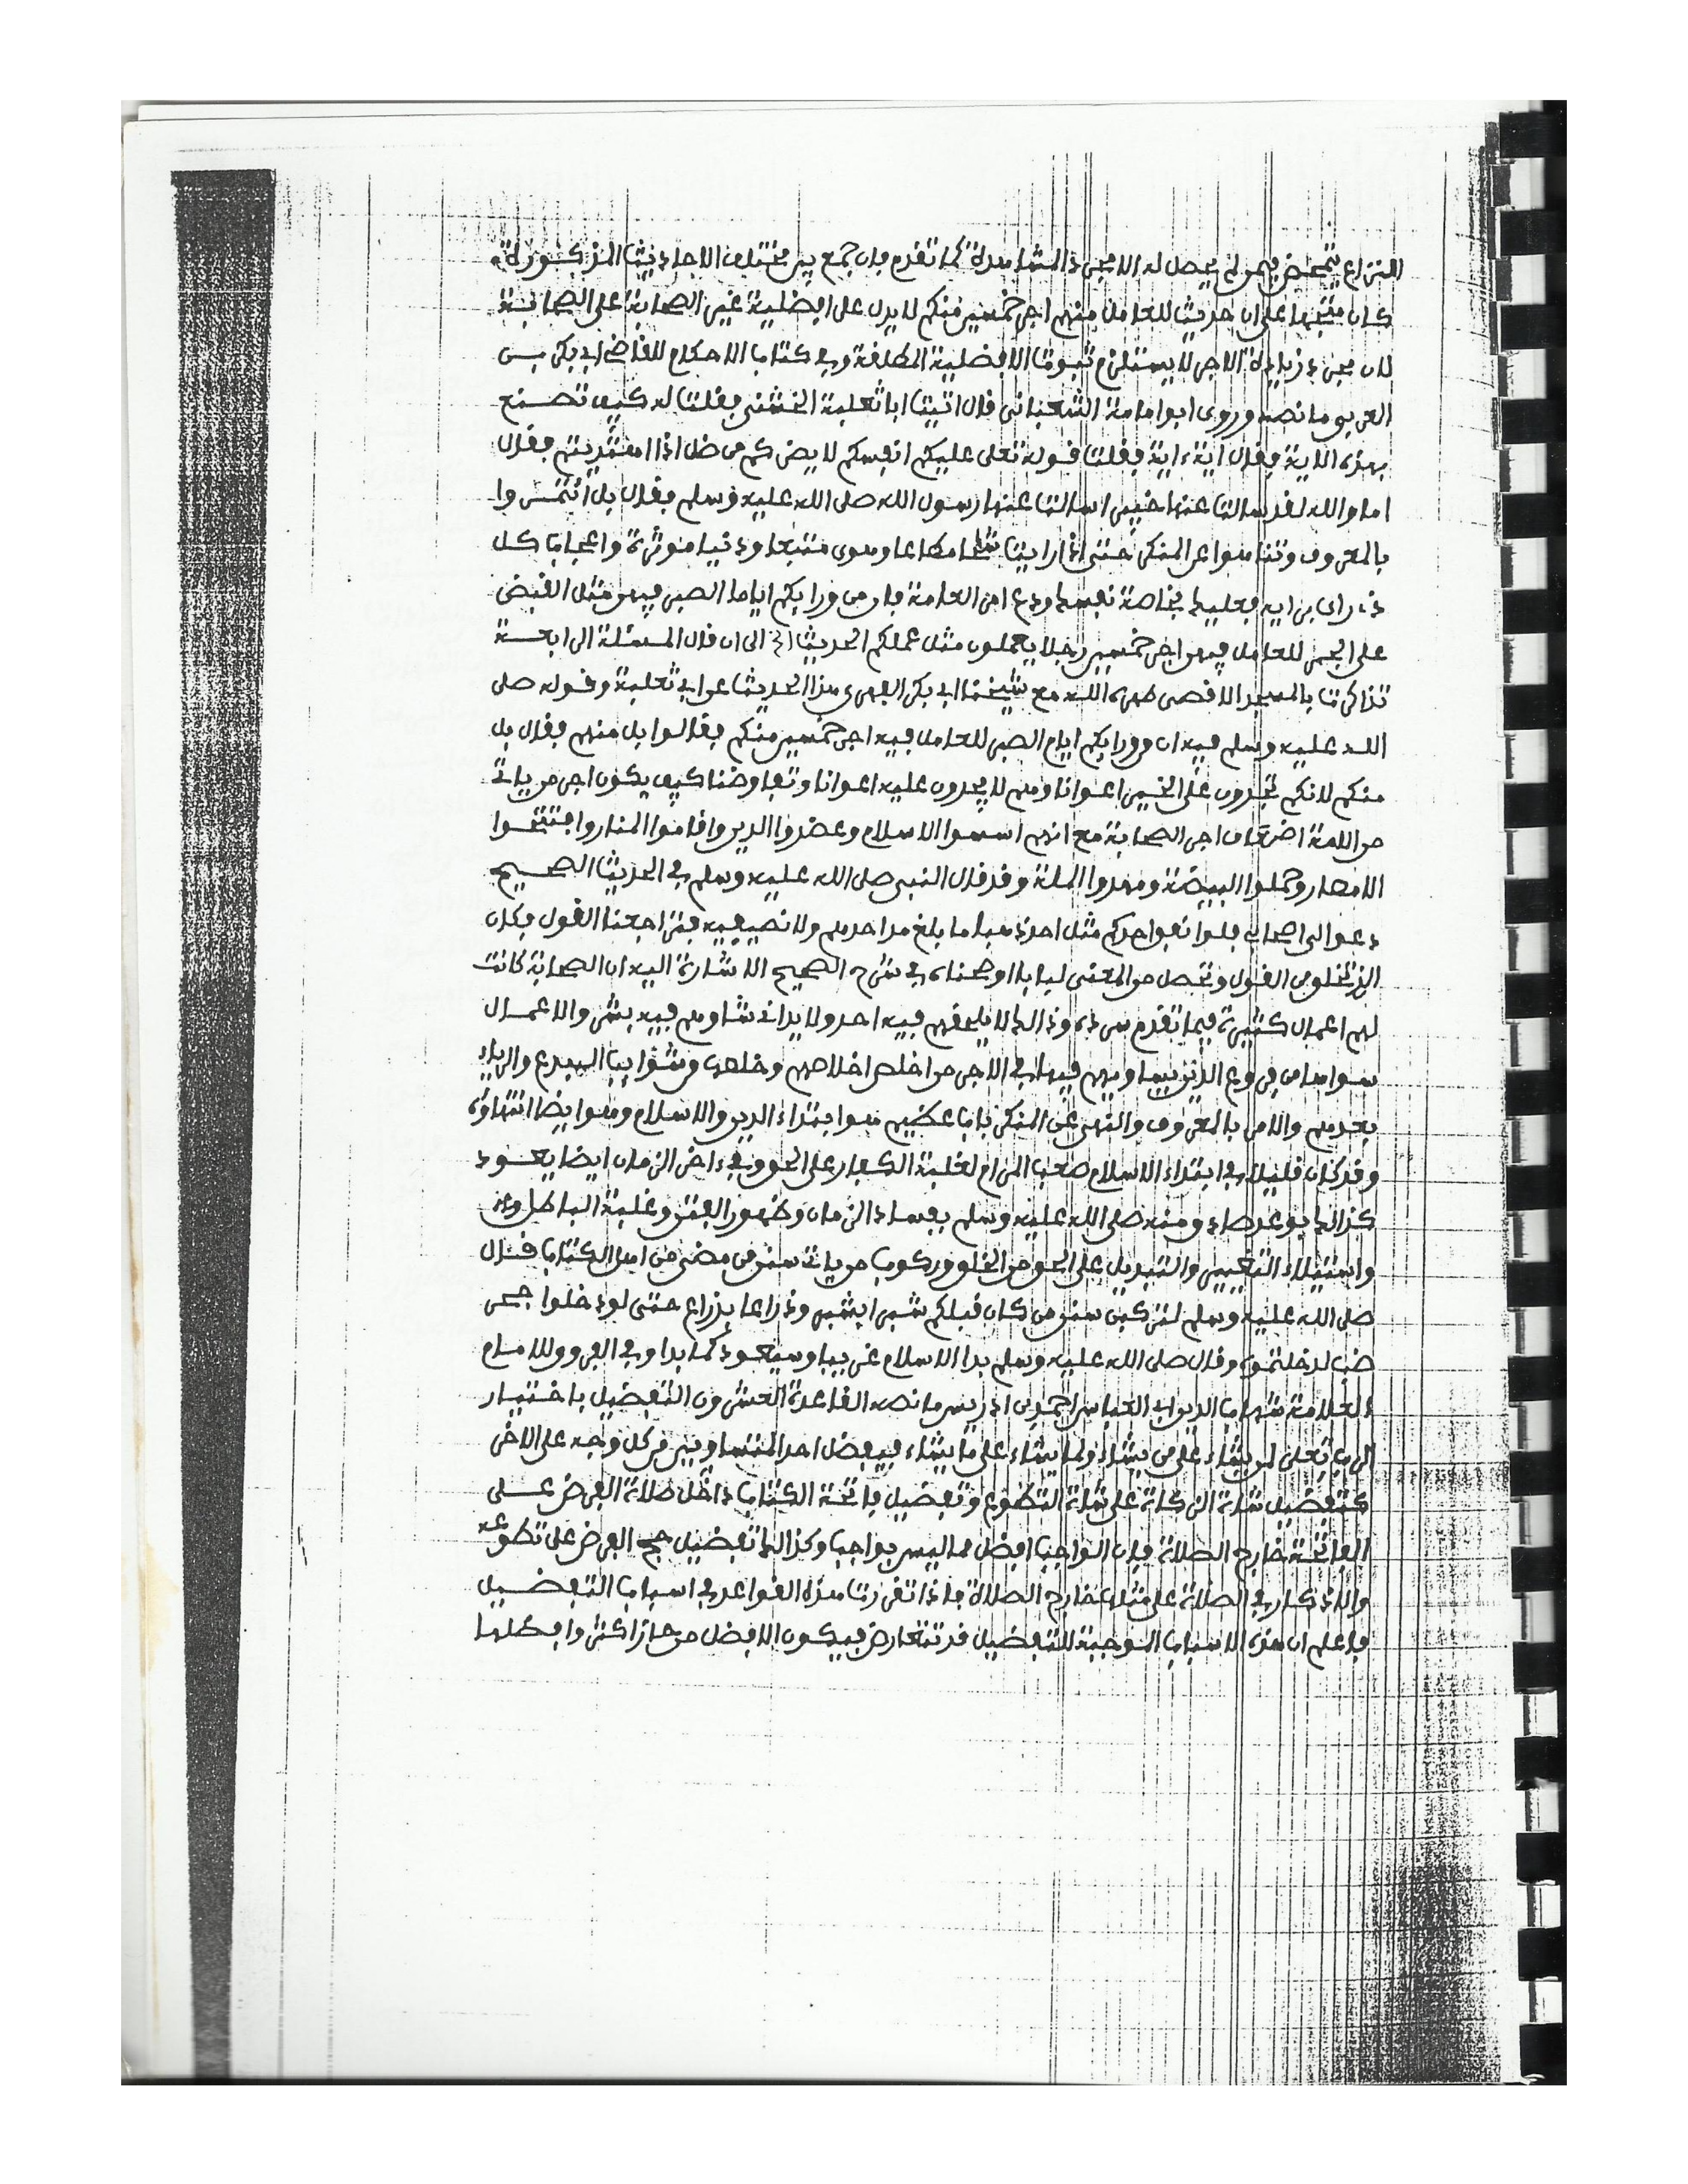 النزاع يتمحض فيمن لم يحصل له الا مجرد المشاهدة كما تقدم فان جمع بين مختلف الاحاديث المذكورة
كان متجها على ان حديث للعامل منهم اجر خمسين منكم لا يدل على افضلية غير الصحابة على الصحابة
لان مجرد زيادة الاجر لا يستلزم ثبوت الافضلية المطلقة وفي كتاب الاحكام للقاضي ابي بكر بن
العربي ما نصه وروى ابو امامة الشعباني قال اتيت ابا ثعلبة الخشني فقلت له كيف تصنع
بهذه الاية فقال اية ءاية فقلت قوله تعلى عليكم انفسكم لا يضركم من ضل اذا اهتديتم فقال
اما والله لقد سالت عنها خبيرا سالت عنها رسول الله صلى الله عليه وسلم فقال بل ائتمروا
بالمعروف وتناهوا عن المنكر حتى اذا رايت شحا مطاعا وهوى متبعا ودنيا موثرة واعجاب كل
ذي راي برايه فعليك بخاصة نفسك ودع امر العامة فان من ورايكم اياما الصبر فيهن مثل القبض
على الجمر للعامل فيهن اجر خمسين رجلا يعملون مثل عملكم الحديث الخ الى ان قال المسئلة الرابعة
تذاكرت بالمسجد الاقصى طهره الله مع شيخنا ابي بكر الفهري هذا الحديث عن ابي ثعلبة وقوله صلى
الله عليه وسلم فيه ان من ورايكم ايام الصبر للعامل فيه اجر خمسين منكم فقالوا بل منهم فقال بل
منكم لانكم تجدون على الخير اعوانا وهم لا يجدون عليه اعوانا وتفاوضنا كيف يكون اجر من ياتي
من الامة اضعاف اجر الصحابة مع انهم اسسوا الاسلام وعضدوا الدين واقاموا المنار وافتتحوا
الامصار وحملوا البيضة ومهدوا الملة وقد قال النبي صلى الله عليه وسلم في الحديث الصحيح
دعوا لي اصحابي فلو انفق احدكم مثل احد ذهبا ما بلغ مد احدهم ولا نصيفه فتراجعنا القول فكان
القول وتحصل من المعنى لبابا اوضحناه في شرح الصحيح الاشارة اليه ان الصحابة كانت
لهم اعمال كثيرة فيما تقدم سرده وذالك لا يلحقهم فيه احد ولا يداني شاوهم فيه بشر والاعمال
سواها من فروع الدين يساويهم فيها في الاجر من اخلص اخلاصهم وخلصها من شوايب البدع والرياء
بعدهم والامر بالمعروف والنهي عن المنكر باب عظيم هو ابتداء الدين والاسلام وهو ايضا انتهاؤه
وقد كان قليلا في ابتداء الاسلام صعب المرام لغلبة الكفار على الحق وفي ءاخر الزمان ايضا يعود
كذالك بوعد صادق منه صلى الله عليه وسلم بفساد الزمان وظهور الفتن وغلبة الباطل
واستيلاء التغيير والتبديل على الحق من الخلق وركوب من ياتي سنن من مضى من اهل الكتاب قال
صلى الله عليه وسلم لتركبن سنن من كان قبلكم شبرا بشبر وذراعا بذراع حتى لو دخلوا جحر
ضب لدخلتموه وقال صلى الله عليه وسلم بدا الاسلام غريبا وسيعود كما بدا وفي الفروق للامام
العلامة شهاب الدين ابي العباس احمد بن ادريس ما نصه القاعدة العشرون التفضيل باختيار
الرب تعلى لمن يشاء على من يشاء ولما يشاء على ما يشاء فيفضل احد المتساويين من كل وجه على الاخر
كتفضيل شاة الزكاة على شاة التطوع وتفضيل فاتحة الكتاب داخل صلاة الفرض على
الفاتحة خارج الصلاة فان الواجب افضل مما ليس بواجب وكذالك تفضيل حج الفرض على تطوعه
والاذكار في الصلاة على مثلها خارج الصلاة فاذا تقررت هذه القواعد في اسباب التفضيل
فاعلم ان هذه الاسباب الموجبة للتفضيل قد تتعارض فيكون الافضل من حاز اكثرها وافضلها